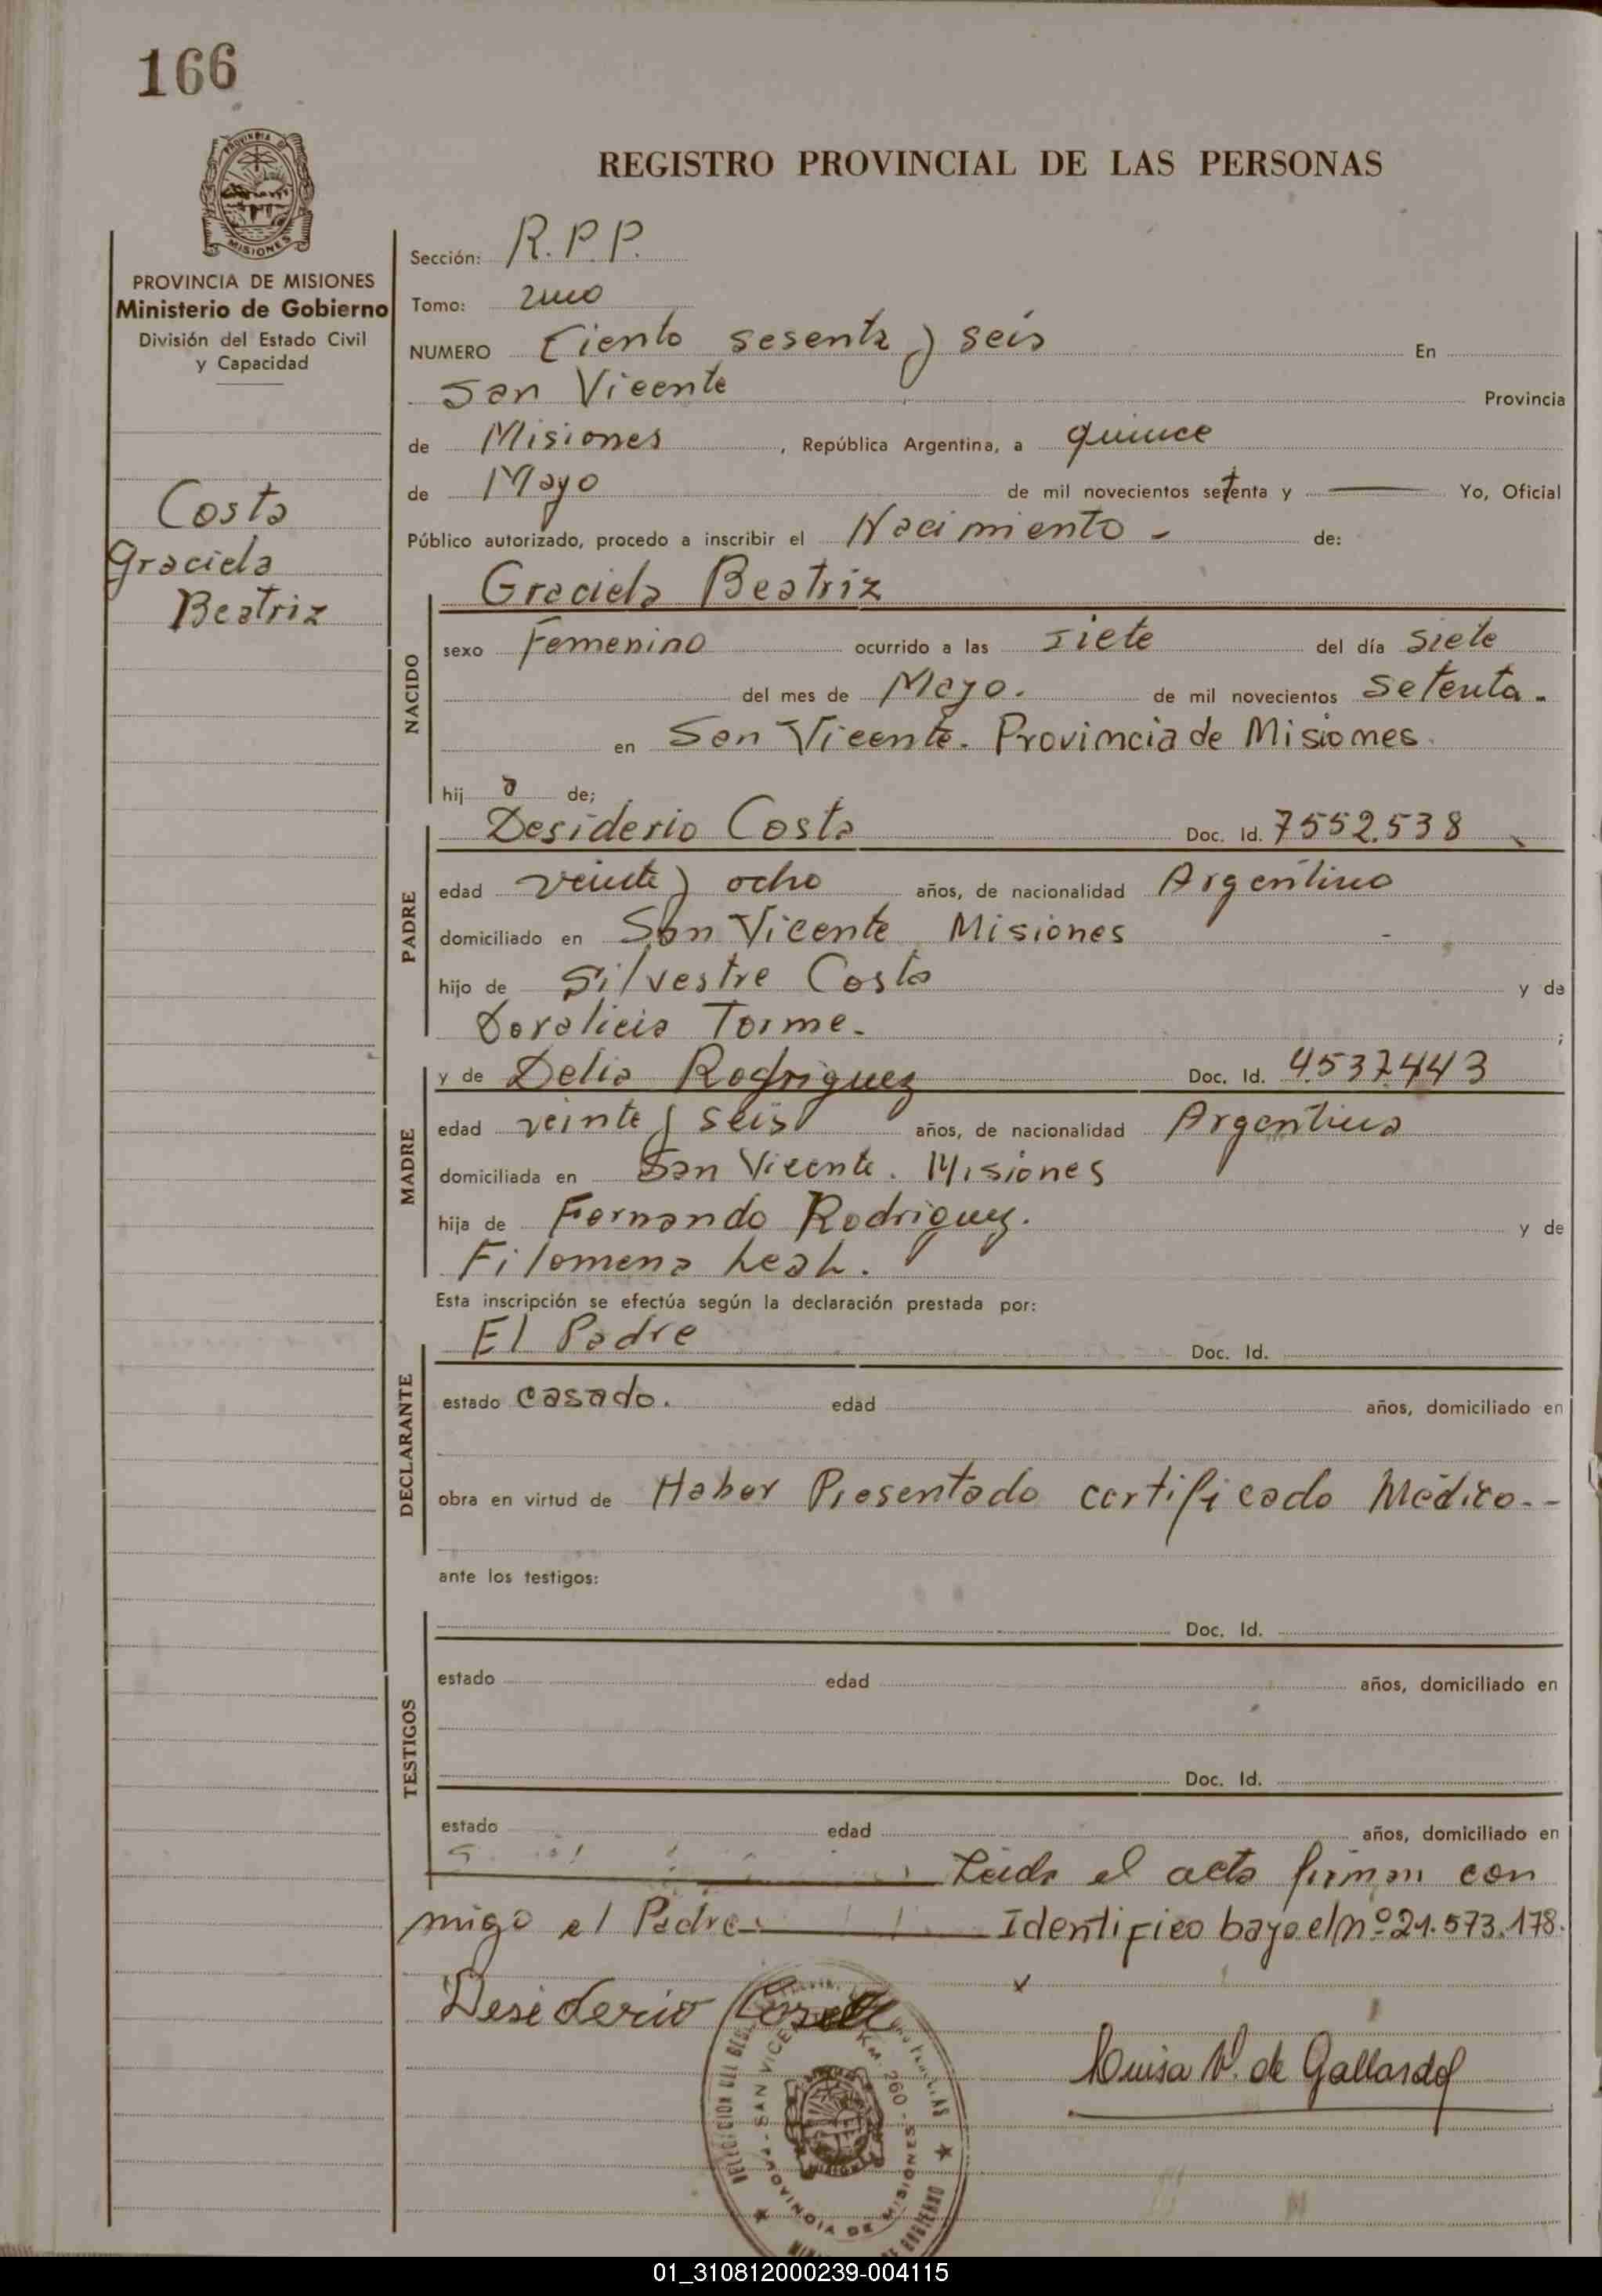 166
PROVINCIA DE MISIONES
Ministerio de Gobierno
División del Estado Civil
y Capacidad
Costa
Graciela
Beatriz
REGISTRO PROVINCIAL DE LAS PERSONAS
Sección: R.P.P.
Tomo: 2uno
NUMERO Ciento sesenta y seis En
San Vicente Provincia
de Misiones, República Argentina, a quince
de Mayo de mil novecientos setenta y — Yo, Oficial
Público autorizado, procedo a inscribir el Nacimiento - de:
Graciela Beatriz
NACIDO
sexo Femenino ocurrido a las siete del día siete
del mes de Mayo. de mil novecientos setenta.-
en San Vicente. Provincia de Misiones.
hij a de;
PADRE
Desiderio Costa Doc. Id. 7552.538
edad veinte y ocho años, de nacionalidad Argentino
domiciliado en San Vicente Misiones -
hijo de Silvestre Costa y de
Doralicia Torme.- ;
MADRE
y de Delia Rodriguez Doc. Id. 4.537.443
edad veinte y seis años, de nacionalidad Argentina
domiciliada en San Vicente. Misiones
hija de Fernando Rodriguez. y de
Filomena Leal.
Esta inscripción se efectúa según la declaración prestada por:
DECLARANTE
El Padre Doc. Id.
estado casado. edad años, domiciliado en
obra en virtud de Haber Presentado certificado Médico.--
ante los testigos:
TESTIGOS
Doc. Id.
estado edad años, domiciliado en
Doc. Id.
estado edad años, domiciliado en
Leida el acta firman con
migo el Padre.— Identifico bajo el nº 21.573.178.
Desiderio Costa
Luisa V. de Gallardo
SAN VICENTE KM. 260 - PROVINCIA DE MISIONES
01_310812000239-004115